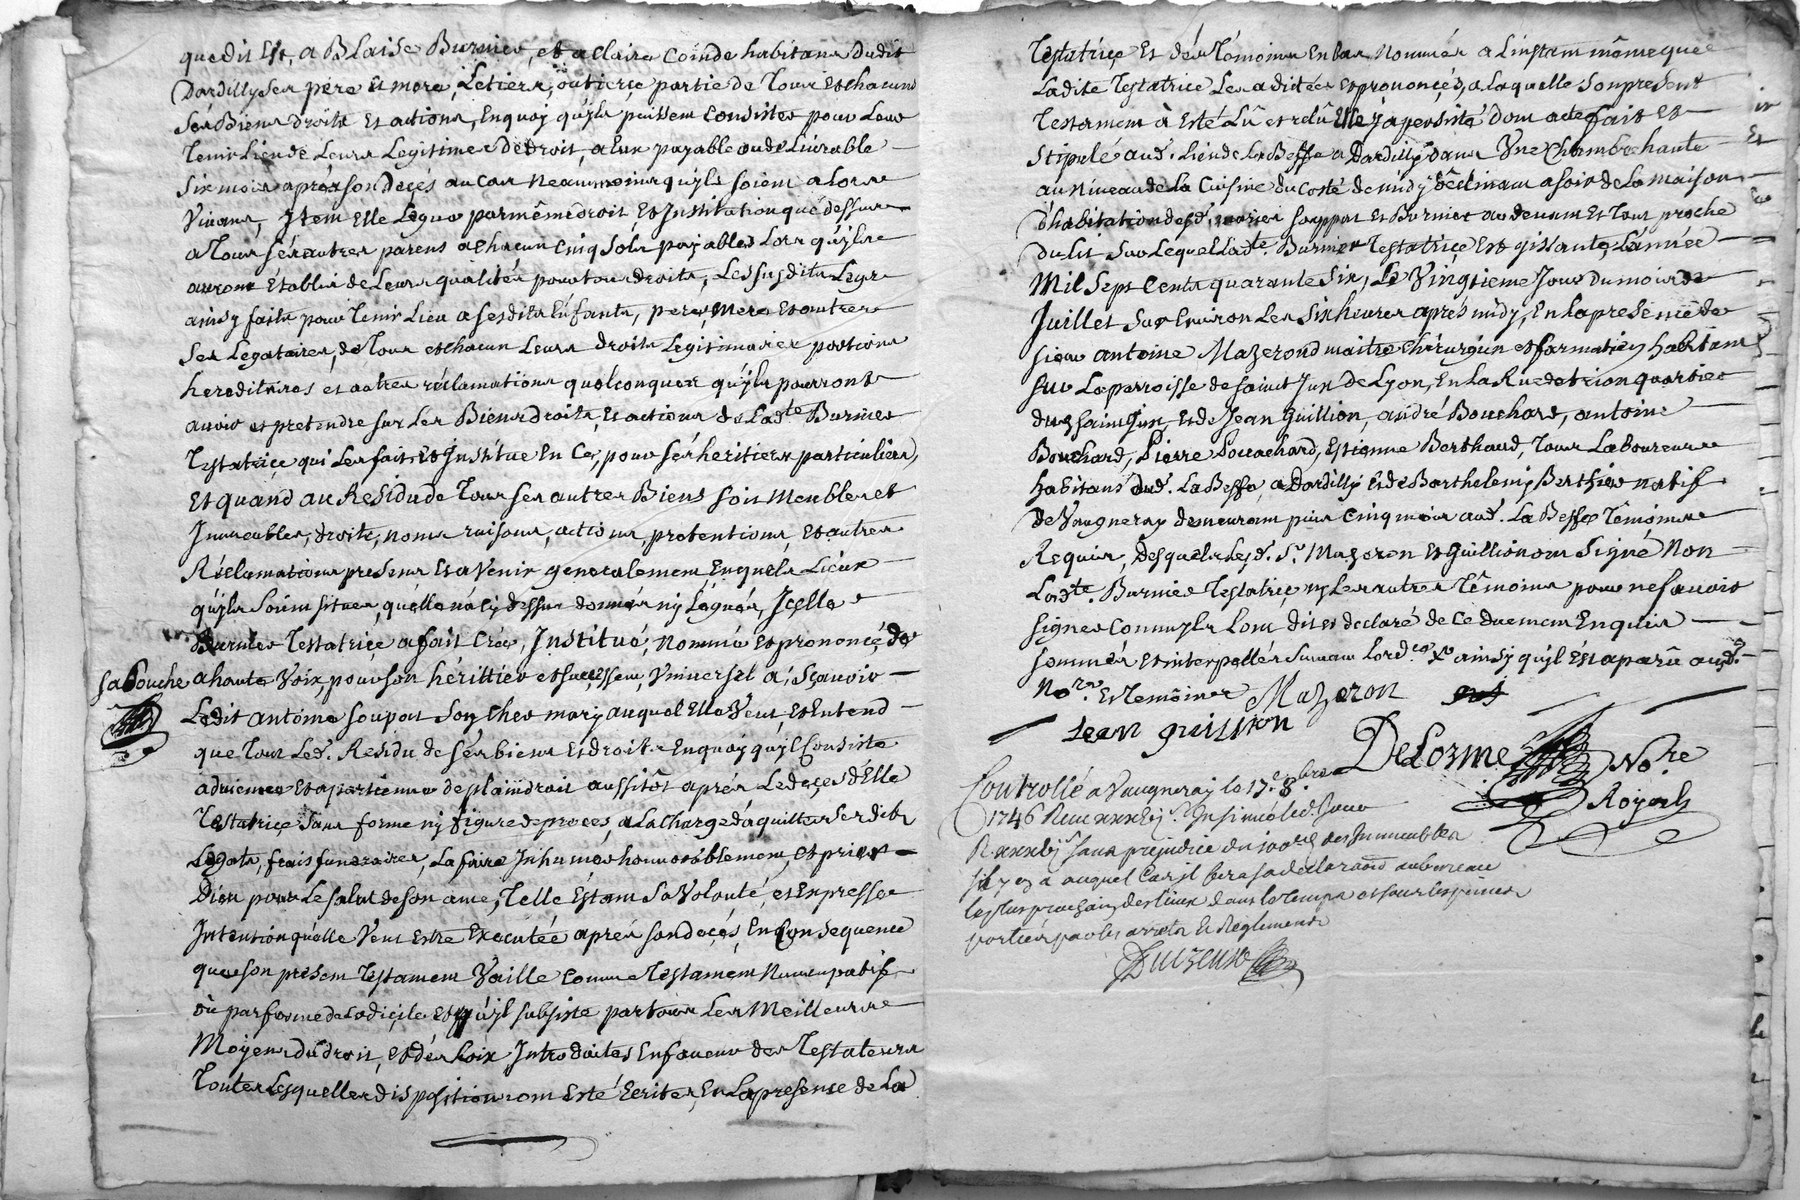 que dit Est, a Blaise Burnier, et a Claire Coinde habitans dudit
Dardilly ses pere et mere, Le tiers, ou tierçe partie de Tous et chacuns
Ses Biens droits et actions, En quoy qu'ils puissent Consister pour Leur
Tenir Lieu de Leurs Legitimes de droit, a Eux payable ou de Livrable
Six mois aprés son deçés au cas neanmoins qu'ils soient alors
Vivans, Item Elle Legue par même droit et Institution que dessus
a Tous sés autres parens a chacun Cinq Sols payables Lors qu'ils
auront Establis de Leurs qualités pour tous droits, Les susdits Legs
ainsy faits pour Tenir Lieu a sesdits Enfants, pere, Mere et autres
Ses Legataires, de Tous et chacun Leurs droits Legitimaires portions
hereditaires et autres réclamations quelconques qu'ils pourront
avoir et pretendre sur Les Biens droits, et actions de Lade Burnier
Testatriçe qui Les fait et Institue En Ce, pour sés heritiers particuliers,
Et quand au Residu de Tous ses autres Biens soit Meubles et
Immeubles, droits, noms raisons, actions, pretentions, et autres
Réclamations presens et a Venir generalement En quels Lieux
qu'ils soient situés, qu'elle n'a cy dessus donnés ny Légués, Icelle
Burnier Testatriçe a fait Créé, Institué, Nommé et prononcé de
sa Bouche a haute Voix, pour son hérittier et suçcesseur, Vniversel a, Sçavoir
Ledit antoine soupat son Cher mary auquel Elle Veut, et Entend
que Tout Led. Residu de sés biens et droits En quoy qu'il Consiste
advienne et apartienne de plain droit aussitôt aprés Le deçes d'Elle
Testatriçe sans forme ny figure de proces, a La Charge d'aquitter ses dits
Legats, frais funeraires, La faire Inhumer honnorablement, et prier
Dieu pour Le salut de son ame, Telle Estant Sa Volonté, et Expresse
Intention qu'elle Veut Estre Executée aprés son deçés, En Consequence
que son present Testament Vaille Comme Testament Nuncupatif
ou par forme de Codiçile et qu'il subsiste par tous Les Meilleurs
Moyens du droit, et des Loix Introduites En faveur des Testateurs
Toutes Lesquelles dispositions ont Esté Ecrites, En La presence de La
Testatriçe Et dés Témoins En bas Nommés a L'instant même que
Ladite Testatrice Les a dictés et prononcés, a Laquelle Son present
Testament à Esté Lû et relû Elle y a persisté dont acte fait et
Stipulé aud. Lieu de La Beffe a Dardilly dans Vne Chambre haute
au Niveau de La Cuisine du Costé de midy déclinant a soir de La Maison
d'habitation desd. mariés souppat et Burnier au devant et Tout proche
du Lit Sur Lequel Lade. Burnier Testatriçe Est gissante, L'année
Mil Sept Cents quarante Six, Le Vingtieme Jour du mois de
Juillet Sur Environ Les Six heures aprés midy, En La presence de
sieur antoine Mazerond maitre Chirurgien et farmatien habitant
sur La parroisse de saint Jun de Lyon, En La Rue de trion quartier
dud saint Jun, et de Jean Guillion, andré Bouchard, antoine
Bouchard, Pierre Bouchard, Estienne Berthaud, Tous Laboureurs
habitans aud. La Beffe, a Dardilly et de Barthelemy Berthier natif
de Vaugneray demeurant puis Cinq mois aud. La Beffe Témoins
Requis, Desquels Lesd. Sr. Mazeron et Guillion ont Signé Non
Lade. Burnier Testatriçe ny Les autres Témoins pour ne sçavoir
signer Comm'ils L'ont dit et declaré de Ce duement Enquis
sommés et interpellés suivant Lord.ce ainsy qu'il Est aparû aud.
No.re Et Temoins Mazeron
Jean guillion
DeLorme No.re
Royal
Controllé a Vaugneray le 17e 8bre
1746 Recu Insinué led. Jour
R sans prejudice du 100e des Immeubles
s'il y en a auquel Cas il sera fait declaration au bureau
les plus prochain des lieux dans le temps et sous les peines
portées par les arrets et Reglements